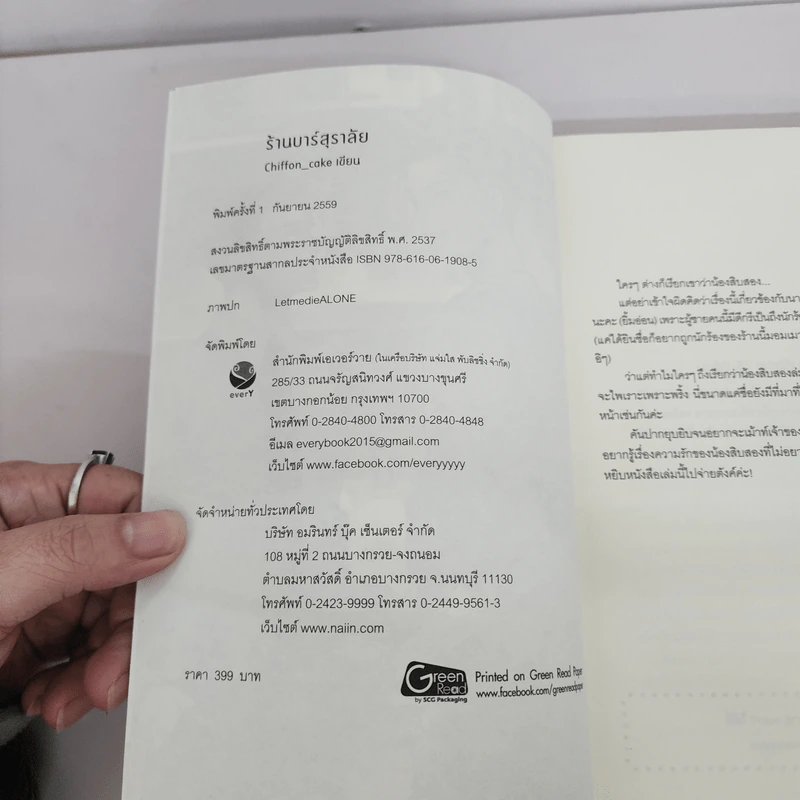 ร้านบาร์สุราลัย
Chiffon_cake เขียน
พิมพ์ครั้งที่ 1 กันยายน 2559
สงวนลิขสิทธิ์ตามพระราชบัญญัติลิขสิทธิ์ พ.ศ. 2537
เลขมาตรฐานสากลประจำหนังสือ ISBN 978-616-06-1908-5
ภาพปก LetmedieALONE
จัดพิมพ์โดย
everY
สำนักพิมพ์เอเวอร์วาย (ในเครือบริษัท แจ่มใส พับลิชชิ่ง จำกัด)
285/33 ถนนจรัญสนิทวงศ์ แขวงบางขุนศรี
เขตบางกอกน้อย กรุงเทพฯ 10700
โทรศัพท์ 0-2840-4800 โทรสาร 0-2840-4848
อีเมล everybook2015@gmail.com
เว็บไซต์ www.facebook.com/everyyyyy
จัดจำหน่ายทั่วประเทศโดย
บริษัท อมรินทร์ บุ๊ค เซ็นเตอร์ จำกัด
108 หมู่ที่ 2 ถนนบางกรวย-จงถนอม
ตำบลมหาสวัสดิ์ อำเภอบางกรวย จ.นนทบุรี 11130
โทรศัพท์ 0-2423-9999 โทรสาร 0-2449-9561-3
เว็บไซต์ www.naiin.com
ราคา 399 บาท
Green Read
by SCG Packaging
Printed on Green Read Paper
www.facebook.com/greenreadpaper
ใครๆ ต่างก็เรียกเขาว่าน้องสิบสอง...
แต่อย่าเข้าใจผิดคิดว่าเรื่องนี้เกี่ยวข้องกับนา
นะคะ (ยิ้มอ่อน) เพราะผู้ชายคนนี้มีดีกรีเป็นถึงนักร้
(แค่ได้ยินชื่อก็อยากถูกนักร้องของร้านนี้มอมเมา
อิๆ)
ว่าแต่ทำไมใครๆ ถึงเรียกว่าน้องสิบสองล่
จะไพเราะเพราะพริ้ง นี่ขนาดแค่ชื่อยังมีที่มาที่
หน้าเช่นกันค่ะ
คันปากยุบยิบจนอยากจะเม้าท์เจ้าของ
อยากรู้เรื่องความรักของน้องสิบสองที่ไม่อยา
หยิบหนังสือเล่มนี้ไปจ่ายตังค์ค่ะ!